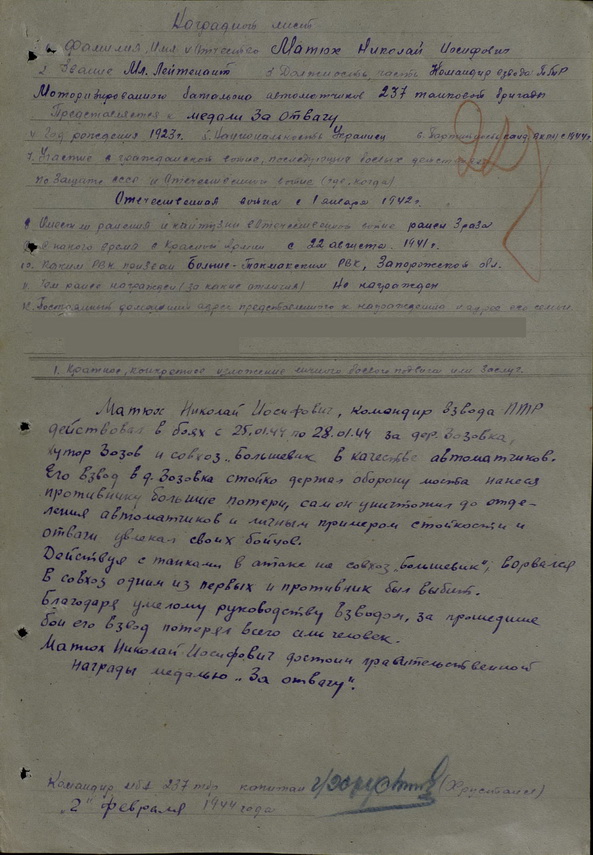 Наградной лист
1. Фамилия, Имя и Отчество Матюх Николай Иосифович
2. Звание Мл. Лейтенант 3. Должность, часть Командир взвода ПТР
Моторизированного батальона автоматчиков 237 танковой бригады
Представляется к медали За Отвагу
4. Год рождения 1923 г. 5. Национальность Украинец 6. Партийность канд. с 1944 г.
7. Участие в гражданской войне, последующих боевых действиях
по защите СССР и Отечественной войне (где, когда)
Отечественная война с 1 января 1942 г.
8. Имеет ли ранения и контузии в отечественной войне ранен 3 раза
9. С какого время в Красной Армии с 22 августа 1941 г.
10. Каким РВК призван Больше-Токмакским РВК, Запорожской обл.
11. Чем ранее награжден (за какие отличия) Не награжден
12. Постоянный домашний адрес представленного к награждению и адрес его семьи
1. Краткое, конкретное изложение личного боевого подвига или заслуг.
Матюх Николай Иосифович, командир взвода ПТР
действовал в боях с 25.01.44 по 28.01.44 за дер. Возовка,
хутор Возов и совхоз „Большевик в качестве автоматчиков.
Его взвод в д. Возовка стойко держал оборону моста нанеся
противнику большие потери, сам он уничтожил до отде-
ления автоматчиков и личным примером стойкости и
отваги увлекал своих бойцов.
Действуя с танками в атаке на совхоз „Большевик", ворвался
в совхоз одним из первых и противник был выбит.
Благодаря умелому руководству взводом, за прошедшие
бои его взвод потерял всего человек.
Матюх Николай Иосифович достоин правительственной
награды медалью „За отвагу".
Командир мбА 237 тбр капитан (Хрусталев)
„2" февраля 1944 года